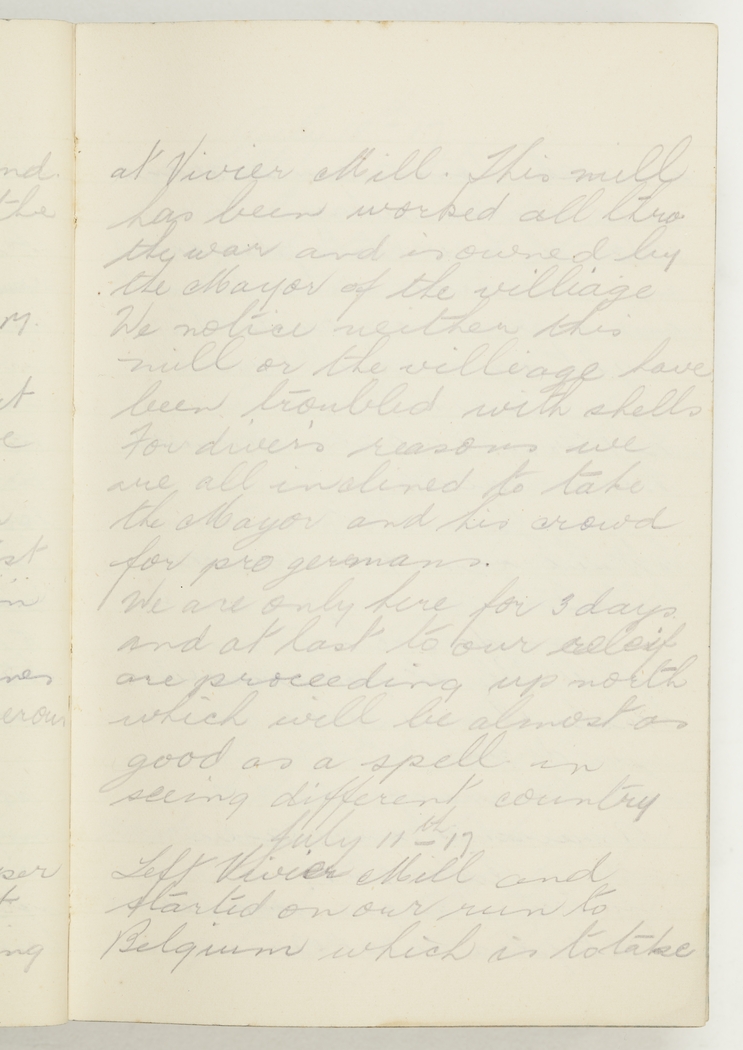 nd.
the
M.
at Vivier Mill. This mill
has been worked all thro
the war and is owned by
the Mayor of the villiage
We notice neither this
mill or the villiage have
been troubled with shells
For divers reasons we
are all inclined to take
the Mayor and his crowd
for pro germans.
We are only here for 3 days
and at last to our releif
are proceeding up north
which will be almost as
good as a spell in
seeing different country
July 11th-17
Left Vivier Mill and
started on our run to
Belgium which is to take